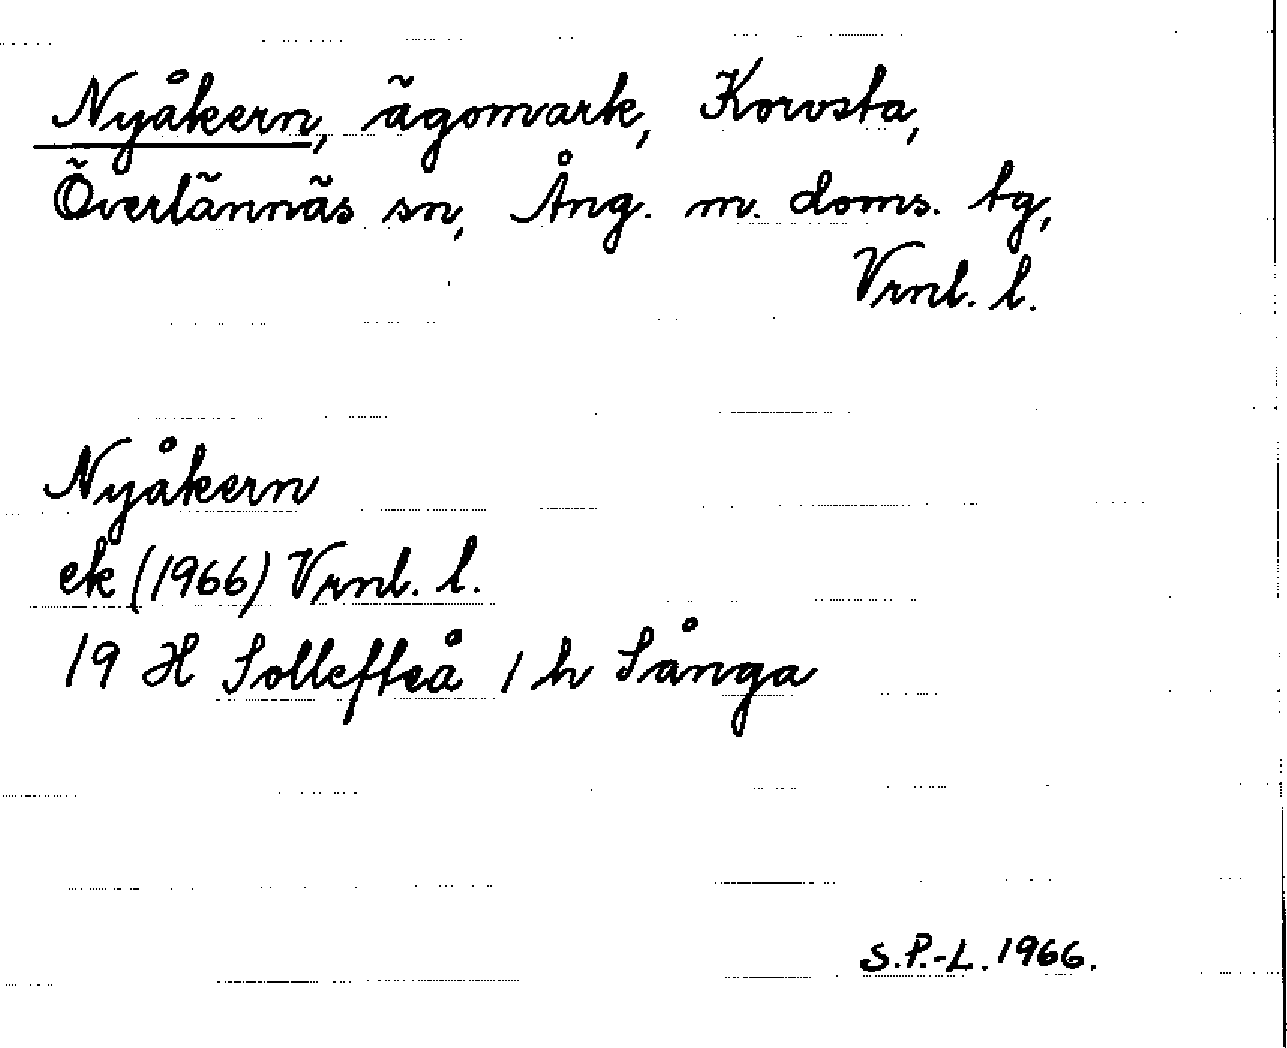 Nyåkern, ägomark, Korvsta,
Överlännäs sn, Ång. m. doms. tg,
Vrnl. l.
Nyåkern
ek (1966) Vrnl. l.
19 H Sollefteå 1 h Sånga
S.P.-L. 1966.